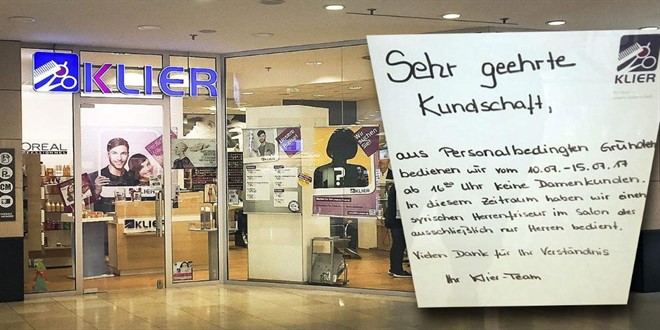 KLIER
OREAL
PROFESSIONNEL
Wir suchen
Sie!
?
KLIER
KLIER
Sehr geehrte
Kundschaft,
KLIER
aus Personalbedingten Gründen
bedienen wir vom 10.07.-15.07.17
ab 16⁰⁰ Uhr keine Damenkunden.
In diesem Zeitraum haben wir einen
syrischen Herrenfriseur im Salon der
ausschließlich nur Herren bedient.
Vielen Dank für Ihr Verständnis
Ihr Klier-Team